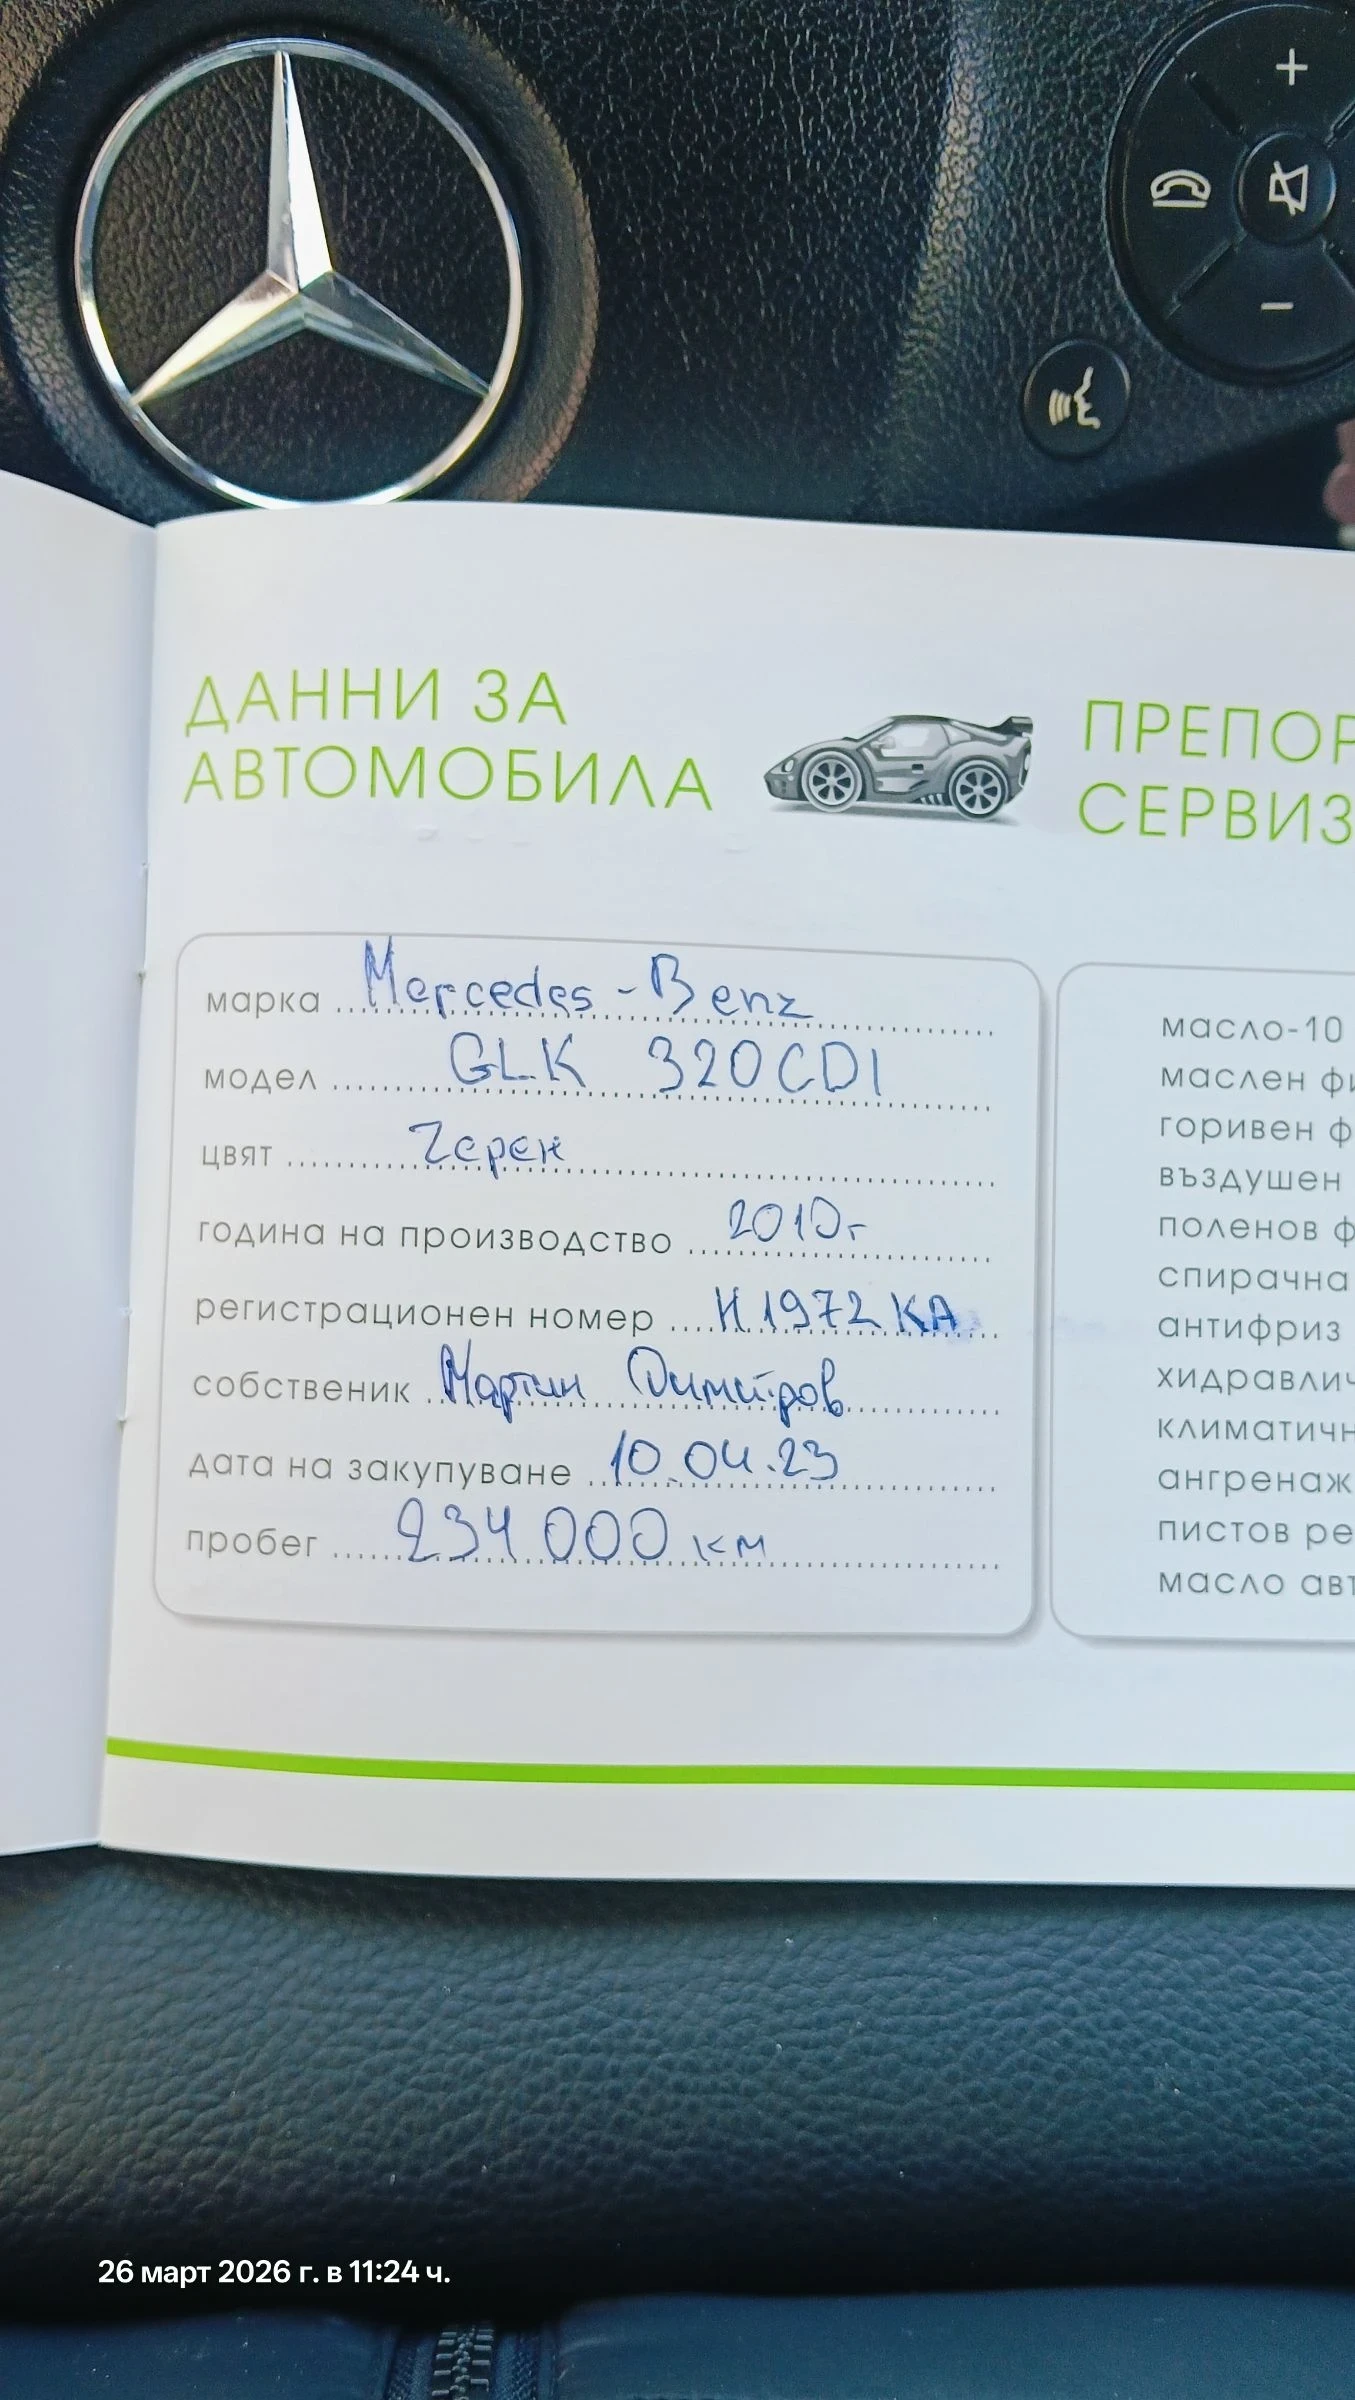 +
-
ДАННИ ЗА
АВТОМОБИЛА
марка Mercedes-Benz
модел GLK 320CDI
цвят Черен
година на производство 2010г
регистрационен номер H1972KA
собственик Мартин Димитров
дата на закупуване 10.04.23
пробег 234 000 км
ПРЕПОР
СЕРВИЗ
масло-10
маслен фи
горивен ф
въздушен
поленов ф
спирачна
антифриз
хидравлич
климатичн
ангренаж
пистов ре
масло авт
26 март 2026 г. в 11:24 ч.